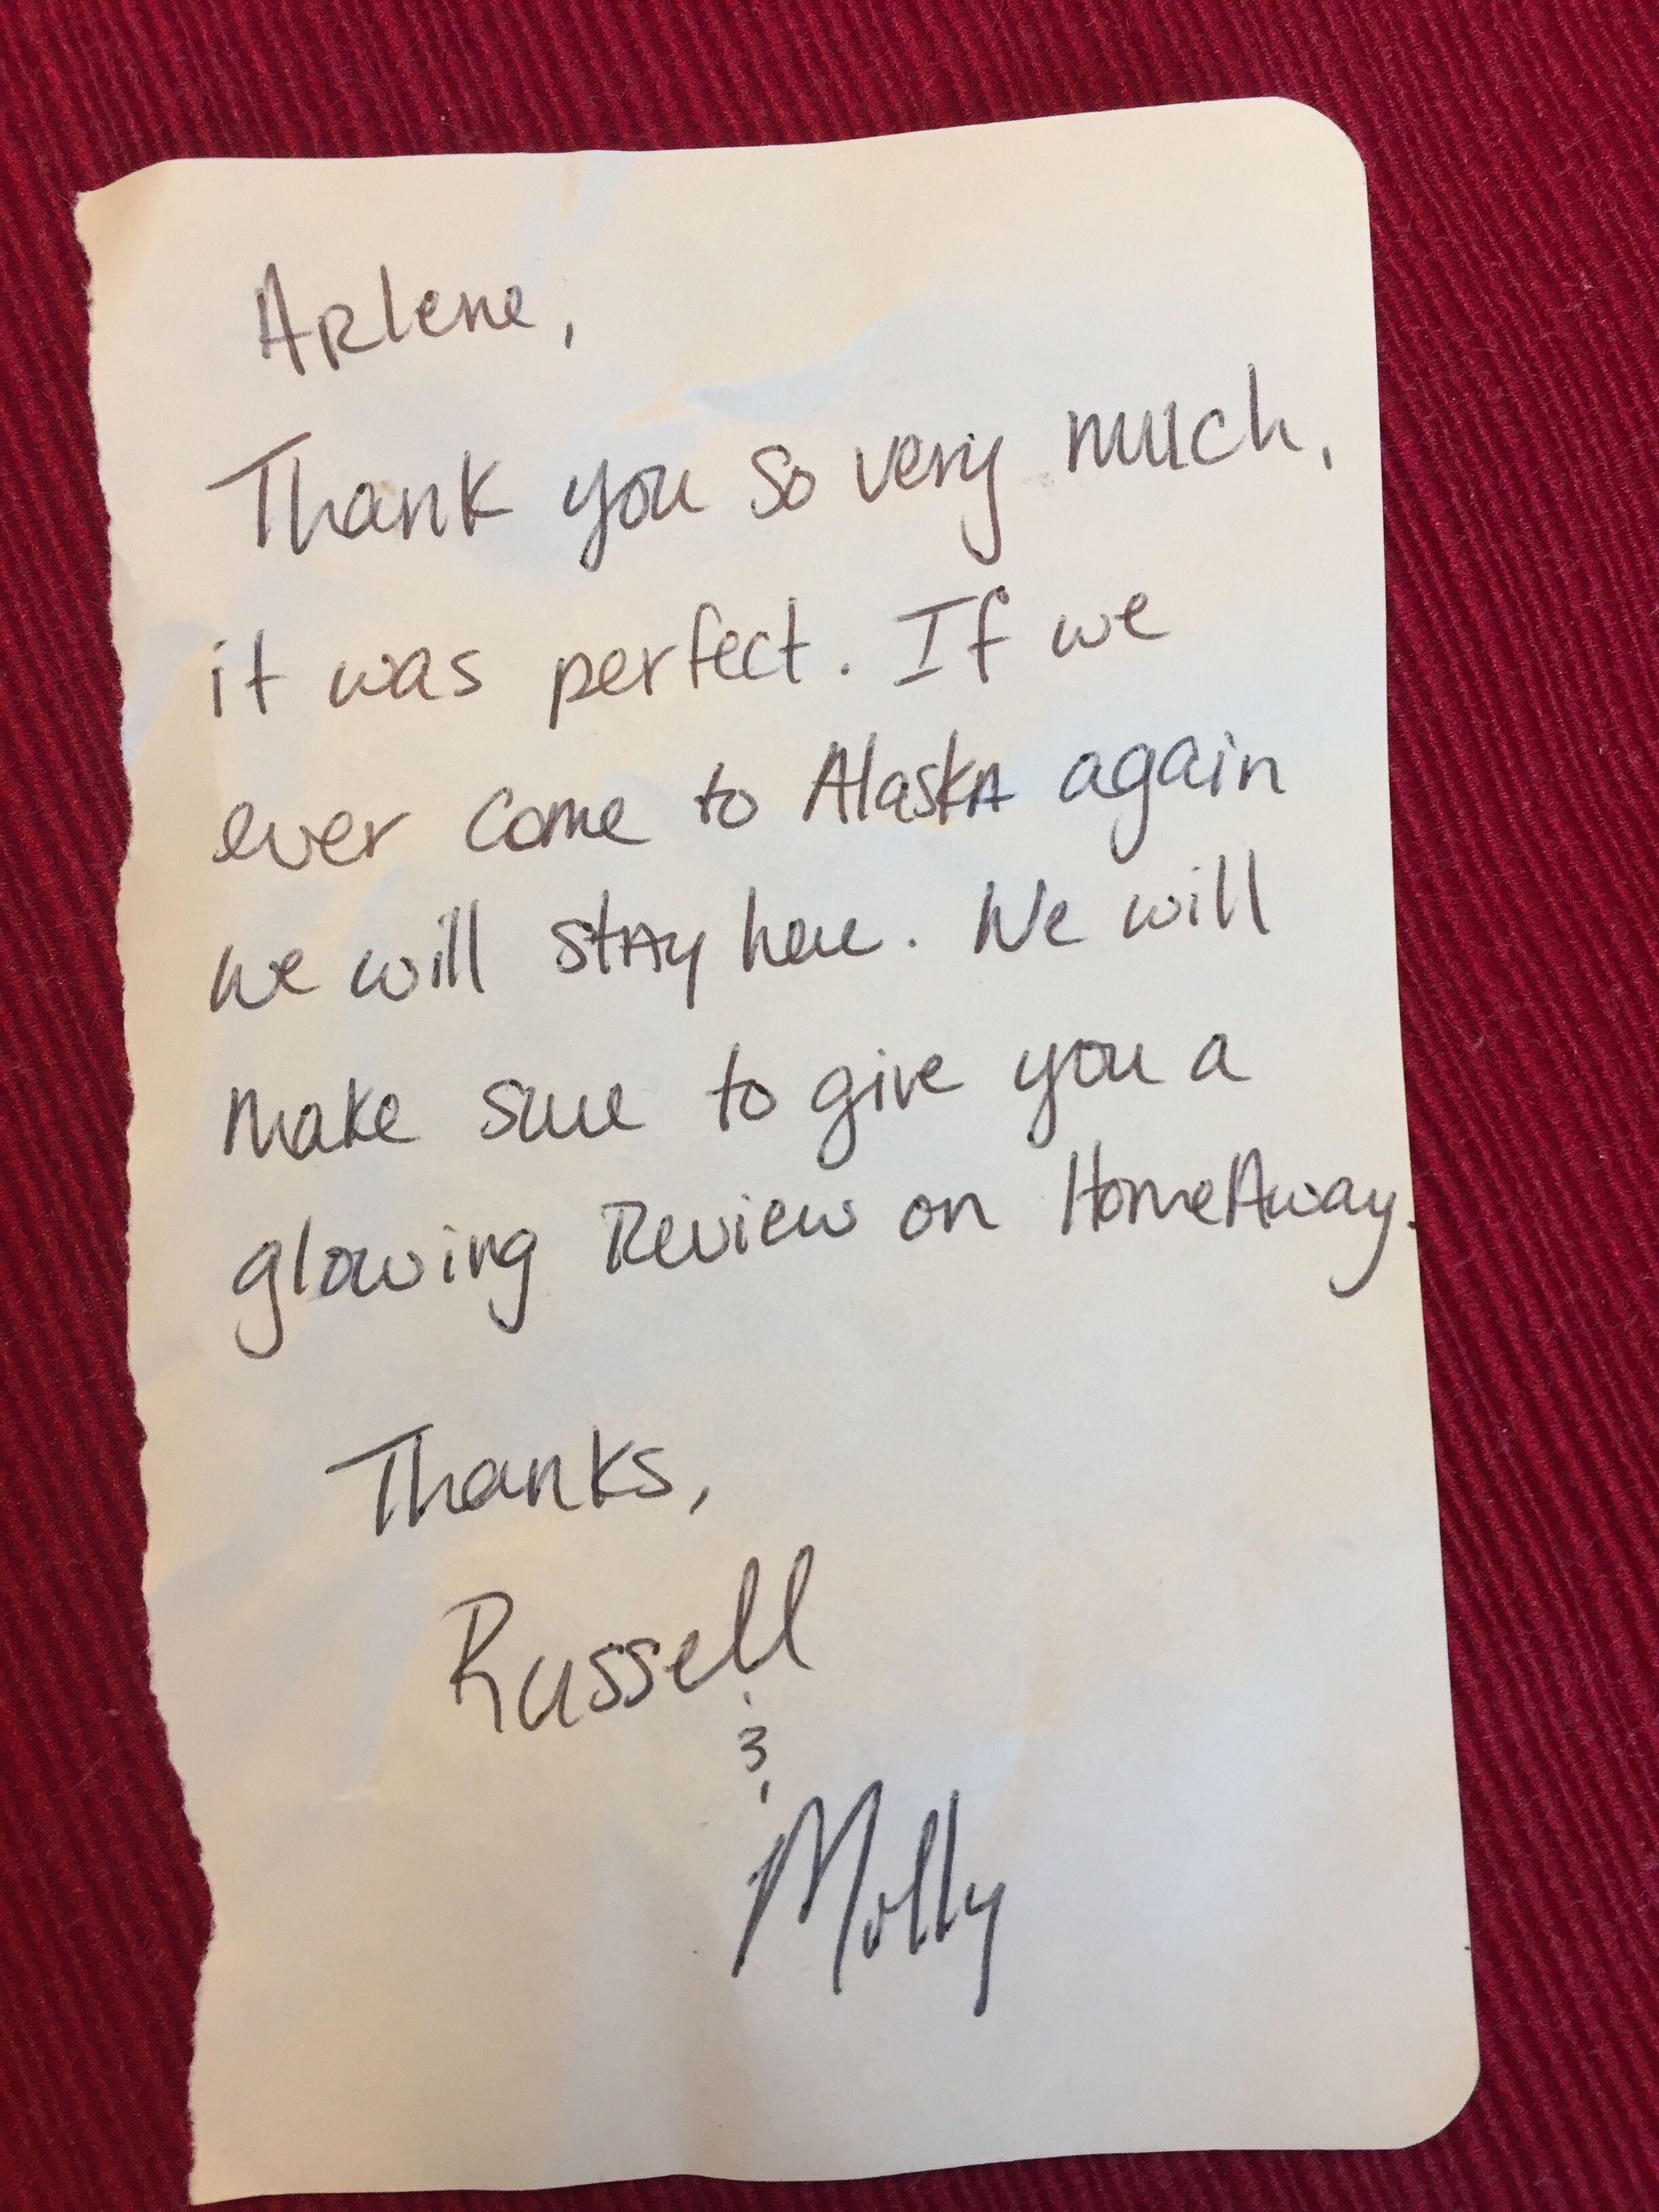 Arlene,
Thank you so very much,
it was perfect. If we
ever come to Alaska again
we will stay here. We will
make sure to give you a
glowing Review on HomeAway.
Thanks,
Russell
&
Molly